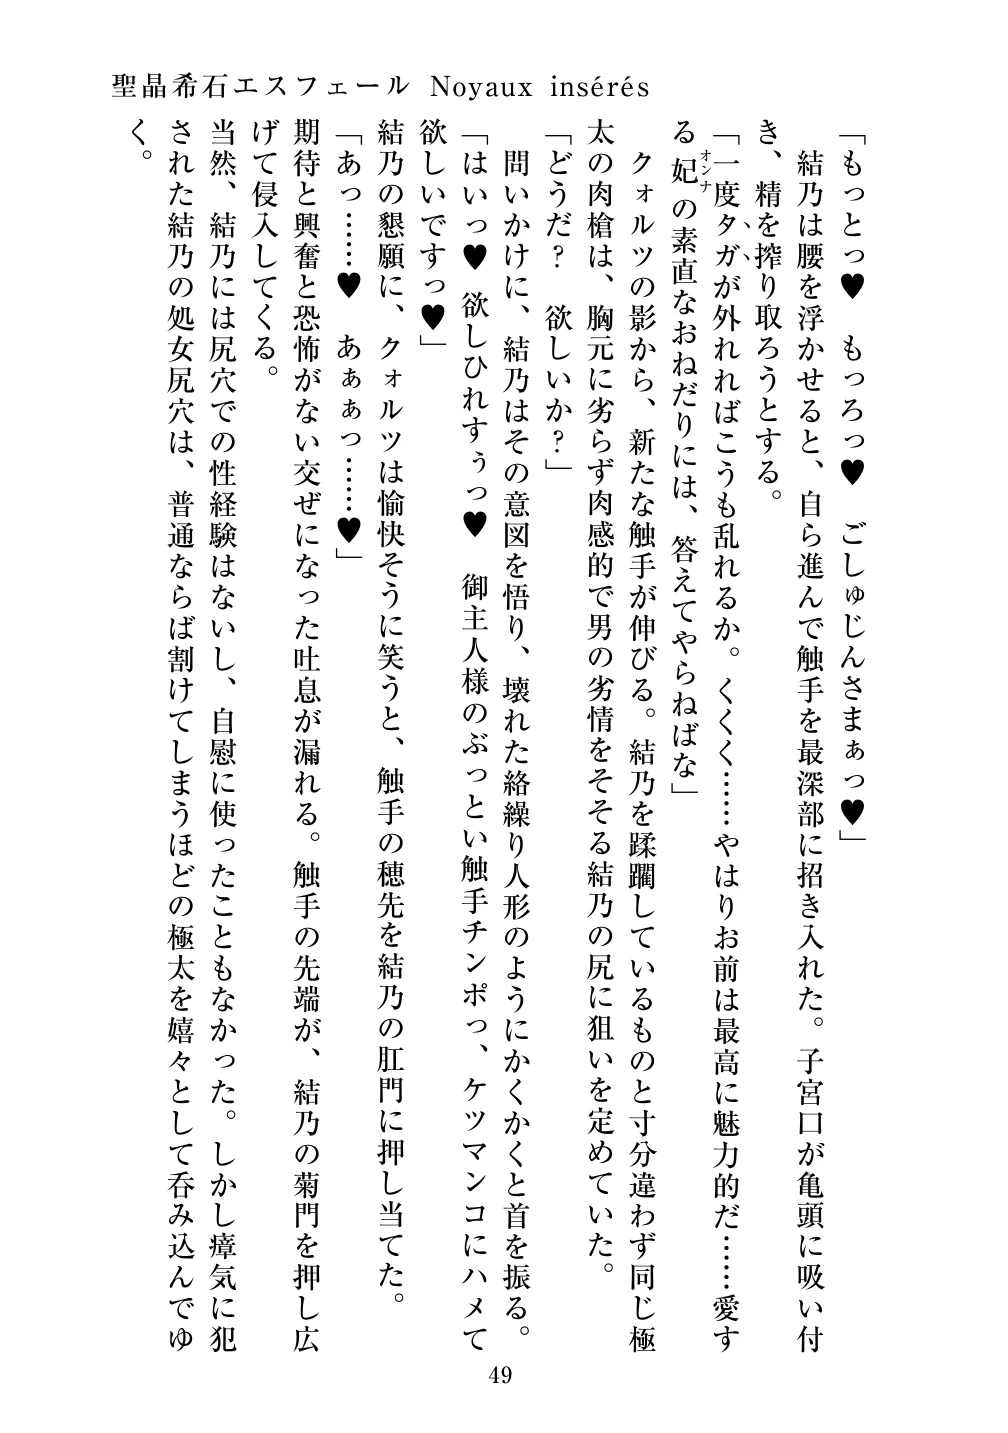 聖晶希石エスフェール Noyaux insérés
「もっとっ♥　もっろっ♥　ごしゅじんさまぁっ♥」
　結乃は腰を浮かせると、自ら進んで触手を最深部に招き入れた。子宮口が亀頭に吸い付
き、精を搾り取ろうとする。
「一度タガが外れればこうも乱れるか。くくく……やはりお前は最高に魅力的だ……愛す
る妃オンナの素直なおねだりには、答えてやらねばな」
　クォルツの影から、新たな触手が伸びる。結乃を蹂躙しているものと寸分違わず同じ極
太の肉槍は、胸元に劣らず肉感的で男の劣情をそそる結乃の尻に狙いを定めていた。
「どうだ？　欲しいか？」
　問いかけに、結乃はその意図を悟り、壊れた絡繰り人形のようにかくかくと首を振る。
「はいっ♥　欲しひれすぅっ♥　御主人様のぶっとい触手チンポっ、ケツマンコにハメて
欲しいですっ♥」
結乃の懇願に、クォルツは愉快そうに笑うと、触手の穂先を結乃の肛門に押し当てた。
「あっ……♥　あぁぁっ……♥」
期待と興奮と恐怖がない交ぜになった吐息が漏れる。触手の先端が、結乃の菊門を押し広
げて侵入してくる。
当然、結乃には尻穴での性経験はないし、自慰に使ったこともなかった。しかし瘴気に犯
された結乃の処女尻穴は、普通ならば割けてしまうほどの極太を嬉々として呑み込んでゆ
く。
49